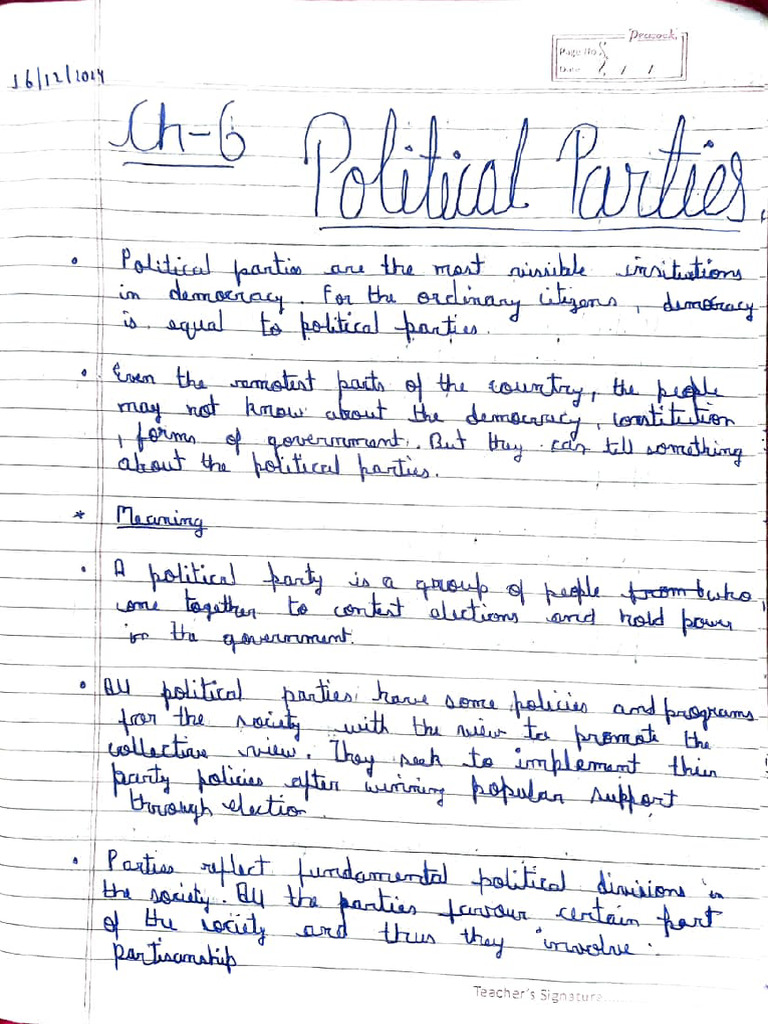 Peacock
Page No 8
Date / /
16/12/2024
Ch-6 Political Parties.
• Political parties are the most vissible insitutions
in democracy. For the ordinary citizens, democracy
is equal to political parties.
• Even the remotest parts of the country, the people
may not know about the democracy, constitution
, forms of government. But they can tell something
about the political parties.
* Meaning
• A political party is a group of people from who
come together to contest elections and hold power
in the government.
• All political parties have some policies and programs
for the society with the view to promote the
collective view. They seek to implement thier
party policies after winning popular support
through election.
• Parties reflect fundamental political divisions in
the society. All the parties favour certain part
of the society and thus they involve
partisanship
Teacher's Signature......